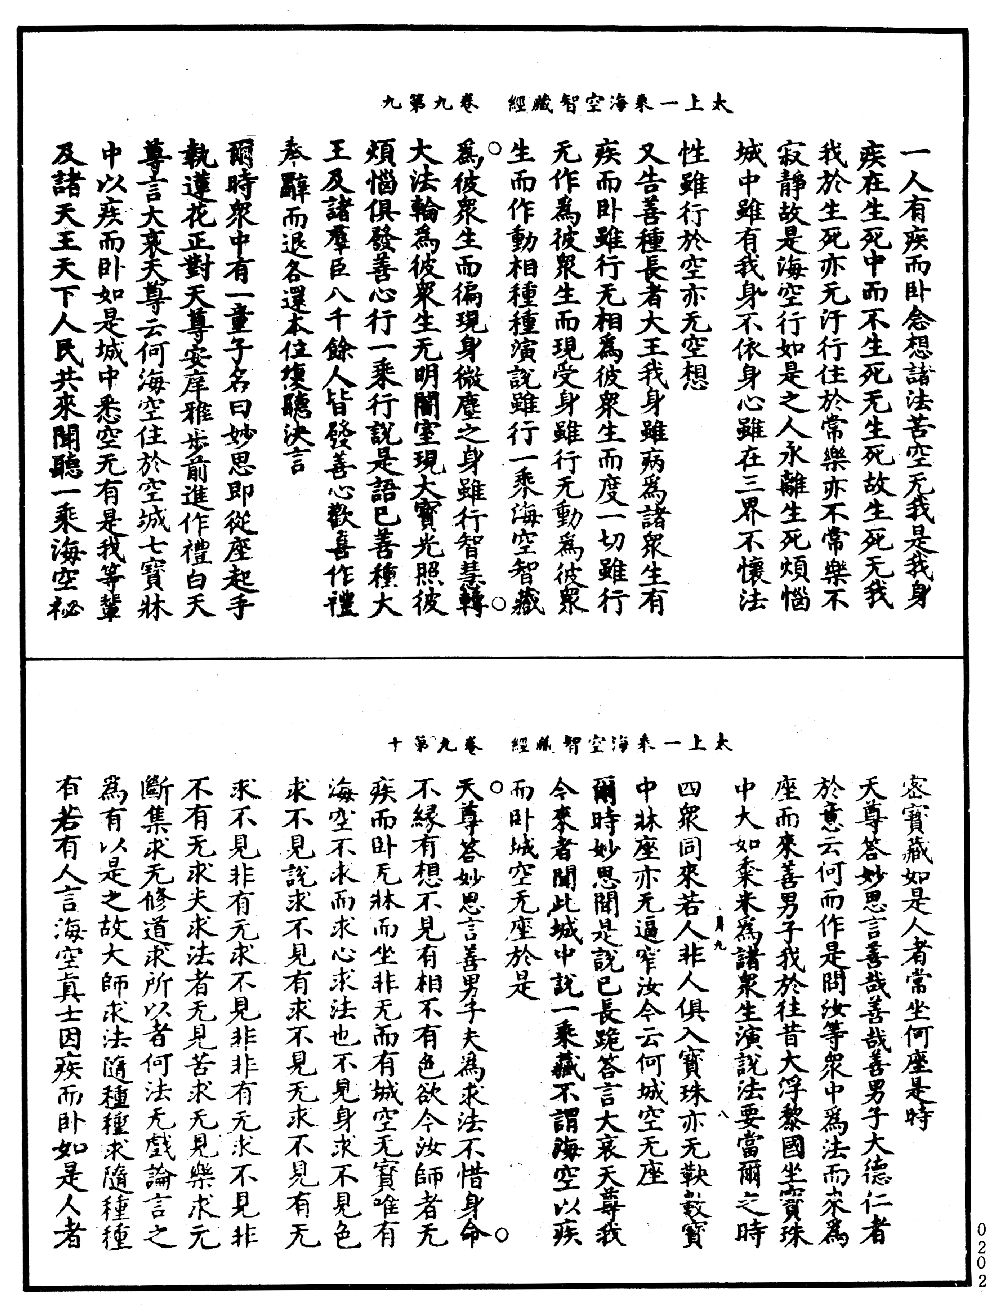 太上一乘海空智藏經　卷九第九
一人有疾而卧念想諸法苦空无我是我身
疾在生死中而不生死无生死故生死无我
我於生死亦无汙行住於常樂亦不常樂不
寂靜故是海空行如是之人永離生死煩惱
城中雖有我身不依身心雖在三界不懷法
性雖行於空亦无空想
又告善種長者大王我身雖病為諸衆生有
疾而卧雖行无相為彼衆生而度一切雖行
无作為彼衆生而現受身雖行无動為彼衆
生而作動相種種演說雖行一乘海空智藏
為彼衆生而徧現身微塵之身雖行智慧轉
大法輪為彼衆生无明闇室現大寶光照彼
煩惱俱發善心行一乘行說是語已善種大
王及諸羣臣八千餘人皆發善心歡喜作禮
奉辭而退各還本位復聽決言
爾時衆中有一童子名曰妙思即從座起手
執蓮花正對天尊安庠雅步前進作禮白天
尊言大哀天尊云何海空住於空城七寶牀
中以疾而卧如是城中悉空无有是我等輩
及諸天王天下人民共來聞聽一乘海空祕
太上一乘海空智藏經　卷九第十
密寶藏如是人者常坐何座是時
天尊答妙思言善哉善哉善男子大德仁者
於意云何而作是問汝等衆中為法而來為
座而來善男子我於往昔大浮黎國坐寶珠
中大如黍米為諸衆生演說法要當爾之時
四衆同來若人非人俱入寶珠亦无鞅數寶
中牀座亦无逼窄汝今云何城空无座
爾時妙思聞是說已長跪答言大哀天尊我
今來者聞此城中說一乘藏不謂海空以疾
而卧城空无座於是
天尊答妙思言善男子夫為求法不惜身命
不緣有想不見有相不有色欲今汝師者无
疾而卧无牀而坐非无而有城空无寶唯有
海空不求而求心求法也不見身求不見色
求不見說求不見有求不見无求不見有无
求不見非有无求不見非非有无求不見非
不有无求夫求法者无見苦求无見樂求无
斷集求无修道求所以者何法无戲論言之
為有以是之故大師求法隨種種求隨種種
有若有人言海空真士因疾而卧如是人者
月九
八
0202